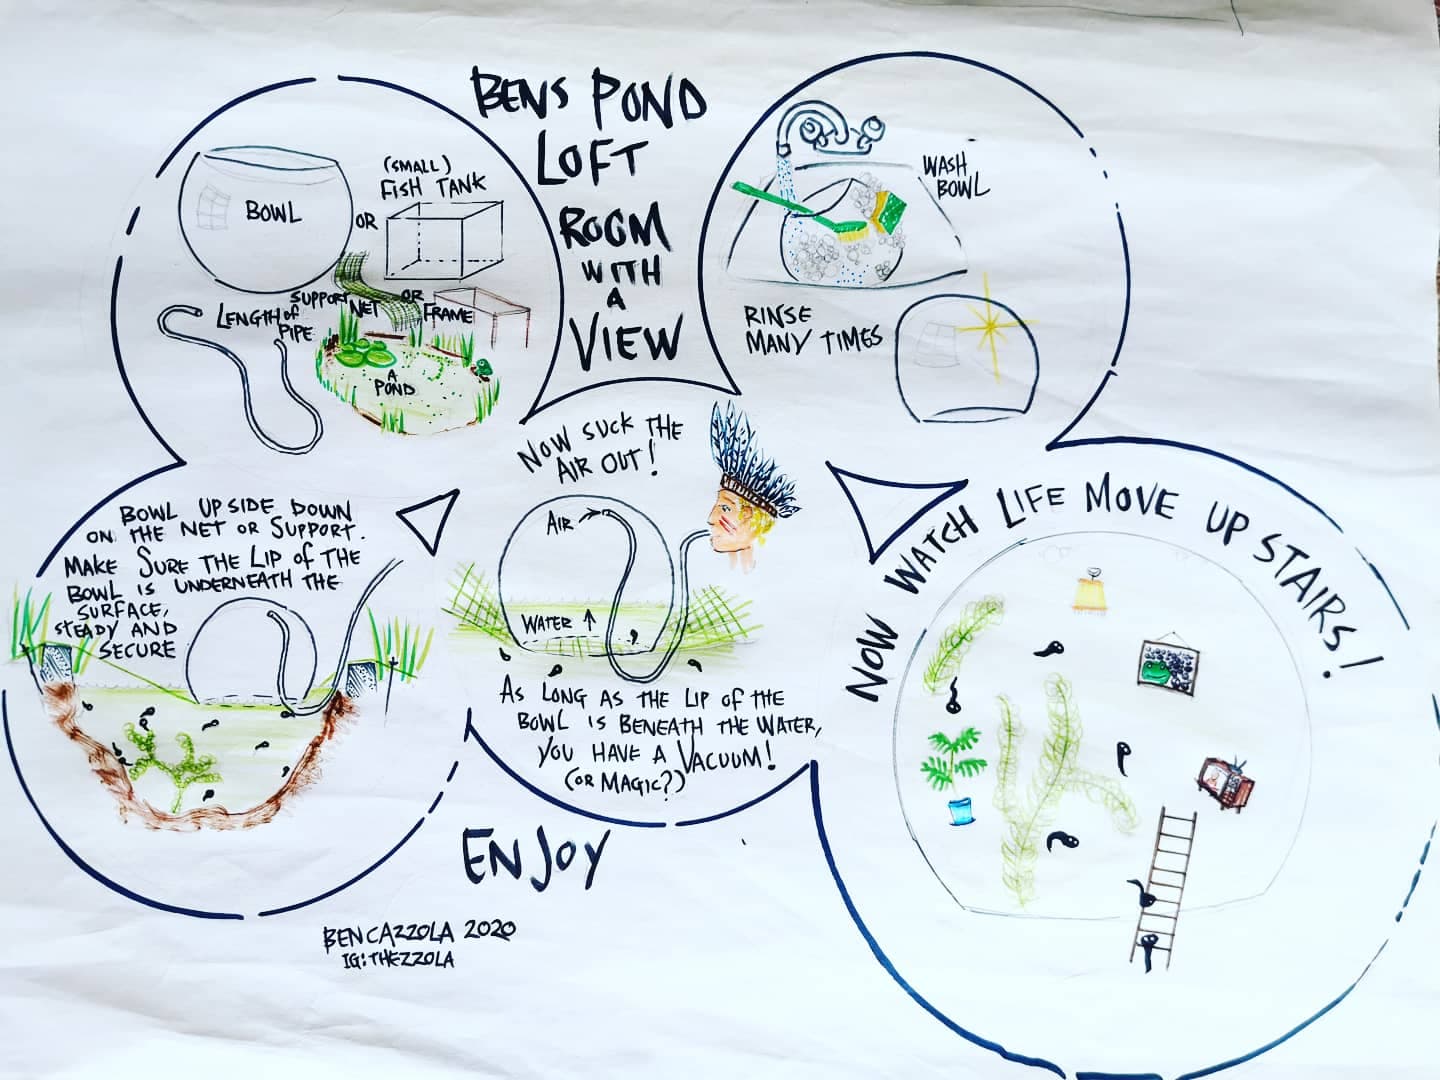 BENS POND
LOFT
ROOM
WITH
A
VIEW
BOWL
OR
(SMALL)
FISH TANK
LENGTH of
PIPE
SUPPORT
NET
OR
FRAME
A
POND
WASH
BOWL
RINSE
MANY TIMES
BOWL UPSIDE DOWN
ON THE NET OR SUPPORT.
MAKE SURE THE LIP OF THE
BOWL IS UNDERNEATH THE
SURFACE,
STEADY AND
SECURE
NOW SUCK THE
AIR OUT!
AIR
WATER
AS LONG AS THE LIP OF THE
BOWL IS BENEATH THE WATER,
YOU HAVE A VACUUM!
(OR MAGIC?)
NOW WATCH LIFE MOVE UP STAIRS!
ENJOY
BEN CAZZOLA 2020
IG:THEZZOLA